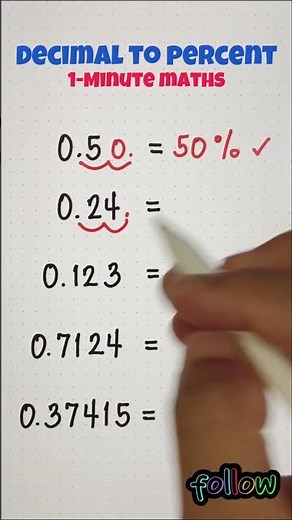 Decimal to Percent
1-Minute maths
0.50. = 50% ✓
0.24. =
0.123 =
0.7124 =
0.37415 =
follow